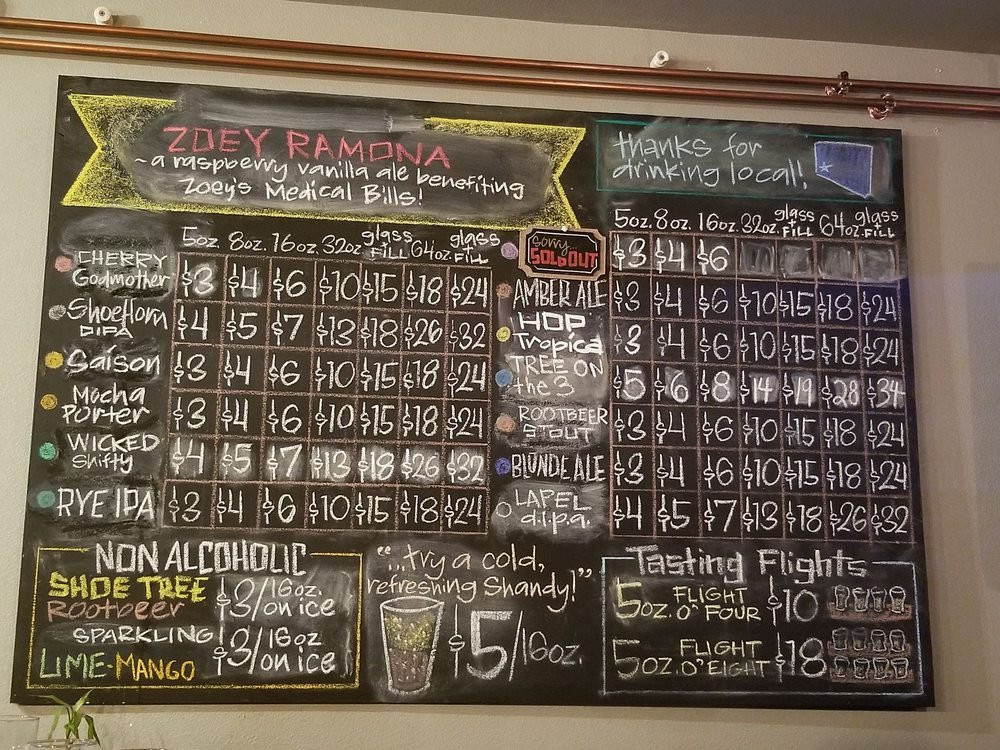 ZOEY RAMONA
~a raspberry vanilla ale benefiting
Zoey's Medical Bills!
thanks for
drinking local!
5oz. 8oz. 16oz. 32oz. glass + FILL 64oz. glass + FILL
CHERRY Godmother $3 $4 $6 $10 $15 $18 $24
Shoehorn DIPA $4 $5 $7 $13 $18 $26 $32
Saison $3 $4 $6 $10 $15 $18 $24
Mocha Porter $3 $4 $6 $10 $15 $18 $24
WICKED Shifty $4 $5 $7 $13 $18 $26 $32
RYE IPA $3 $4 $6 $10 $15 $18 $24
5oz. 8oz. 16oz. 32oz. glass + FILL 64oz. glass + FILL
sorry... SOLD OUT $3 $4 $6
AMBER ALE $3 $4 $6 $10 $15 $18 $24
HOP Tropica $3 $4 $6 $10 $15 $18 $24
TREE ON the 3 $5 $6 $8 $14 $19 $28 $34
ROOTBEER STOUT $3 $4 $6 $10 $15 $18 $24
BLONDE ALE $3 $4 $6 $10 $15 $18 $24
LAPEL d.i.p.a. $4 $5 $7 $13 $18 $26 $32
NON ALCOHOLIC
SHOE TREE
Rootbeer $3/16oz. on ice
SPARKLING
LIME-MANGO $3/16oz on ice
"...try a cold,
refreshing Shandy!"
$5/16oz.
Tasting Flights
5oz. FLIGHT O" FOUR $10
5oz. FLIGHT O" EIGHT $18